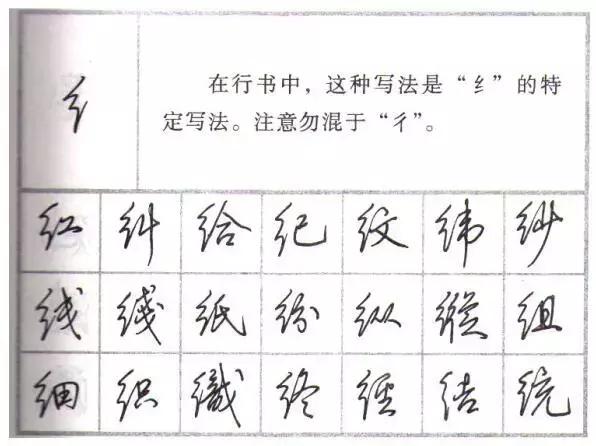 纟
在行书中，这种写法是“纟”的特
定写法。注意勿混于“彳”。
红 纠 给 纪 纹 纬 纱
线 綫 纸 纷 纵 縱 组
细 织 織 终 經 结 统